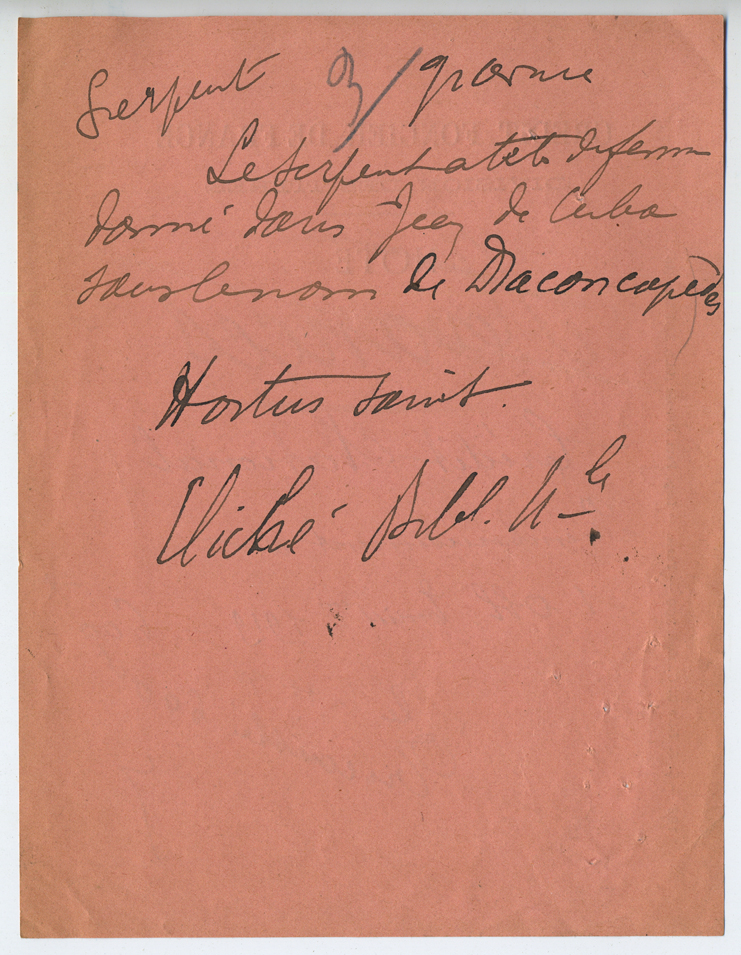 Serpent gravure
Le Serpent a tête de femme
donné dans Jean de Cuba
sous le nom de Draconcopedes
Hortus sanit.
Cliché Bibl. Nle.